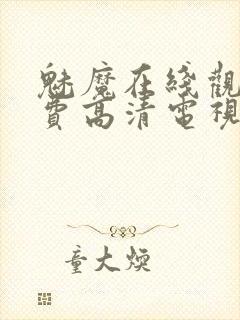 魅魔在綫觀
費高清電視
童大煥